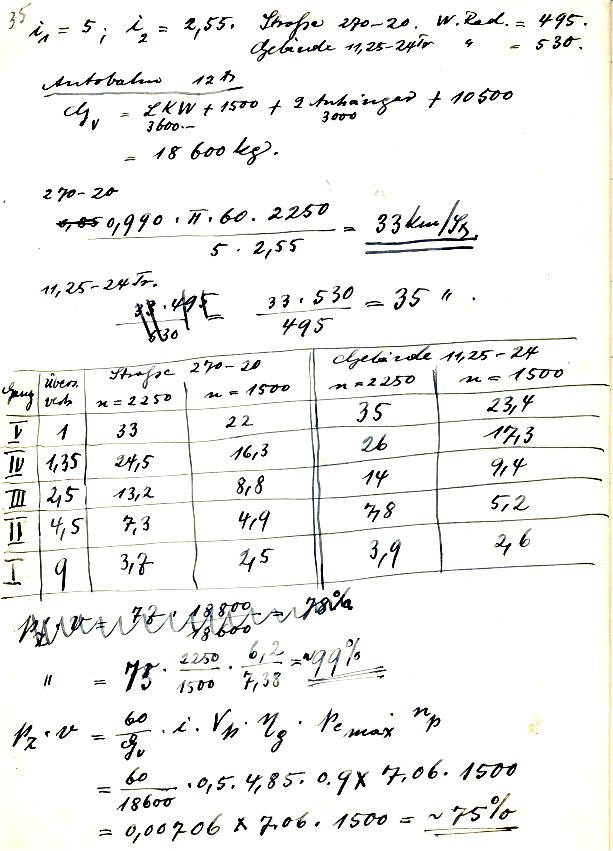 35
i₁ = 5 ; i₂ = 2,55. Straße 270-20. W. Rad. = 495.
Gelände 11,25-24 Tr " = 530.
Autobahn 12 tr
Gv = LKW + 1500 + 2 Anhänger + 10500
3600.- 3000
= 18 600 kg.
270-20
0,990 · π · 60 · 2250 / 5 · 2,55 = 33 km/St.
11,25-24 Tr.
33 · 495 / 530 = 33 · 530 / 495 = 35 " .
Gang Übers. verh. Straße 270-20 Gelände 11,25-24
n = 2250 n = 1500 n = 2250 n = 1500
V 1 33 22 35 23,4
IV 1,35 24,5 16,3 26 17,3
III 2,5 13,2 8,8 14 9,4
II 4,5 7,3 4,9 7,8 5,2
I 9 3,7 2,5 3,9 2,6
pz · v = 78 · 18800 / 18600 = 78%
" = 75 · 2250 / 1500 · 6,2 / 7,38 = ~99%
pz · v = 60 / Gv · i · Vp · ηg · Pe max np
= 60 / 18600 · 0,5 · 4,85 · 0.9 x 7.06 · 1500
= 0,00706 x 7.06 · 1500 = ~75%